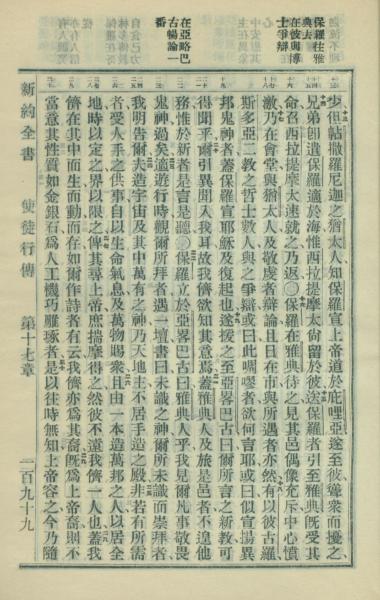 保羅往雅
典去
在彼與博
士爭辯
少但帖撒羅尼迦之猶太人知保羅宣上帝道於庇哩亞遂至彼聳衆而擾之
兄弟卽遣保羅適於海惟西拉提摩太尚留於彼送保羅者引至雅典旣受其
命召西拉提摩太速就之乃返○保羅在雅典待之見其邑偶像充斥中心憤
激乃在會堂與猶太人及敬虔者辯論且日在市與所遇者亦然有以彼古羅
斯多亞二教之哲士數人與之爭辯或曰此啁噍者欲何言耶或曰似宣揚異
邦鬼神者蓋保羅宣耶穌及復起也遂援之至亞畧巴古曰爾所言之新教可
得聞乎爾引異聞入我耳故我儕欲知其意焉蓋雅典人及旅是邑者不遑他
在亞略巴
古暢論一
番
務惟於新者是言是聽○保羅立於亞畧巴古曰雅典人乎我見爾凡事敬畏
鬼神過矣適遊行時觀爾所拜者遇一壇書曰未識之神爾所未識而崇拜者
我明告爾夫造宇宙及其中萬有之神乃天地主不居手造之殿非若有所需
者受人手之供事自以生命氣息及萬物賜衆且由一本造萬邦之人以居全
地時以定之界以限之俾其尋上帝庶揣摩得之然彼不遠我儕一人也蓋我
儕在其中而生而動而存在如爾作詩者有云我儕亦爲其裔旣爲上帝裔則不
當意其性質如金銀石爲人工機巧雕琢者是以往時無知上帝容之今乃隨
新約全書 使徒行傳 第十七章 二百九十九